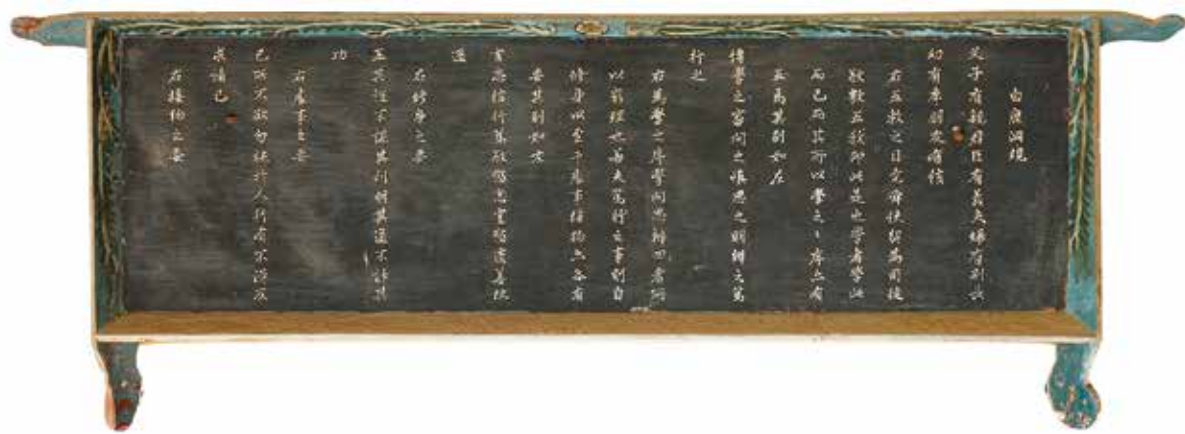 白鹿洞規
父子有親君臣有義夫婦有別長
幼有序朋友有信
右五教之目堯舜使契爲司徒
敬敷五教即此是也學者學此
而已而其所以學之〻序亦有
五焉其別如左
博學之審問之愼思之明辨之篤
行之
右爲學之序學問思辨四者所
以窮理也若夫篤行之事則自
修身以至于處事接物亦各有
要其別如左
言忠信行篤敬懲忿窒慾遷善改
過
右修身之要
正其誼不謀其利明其道不計其
功
右處事之要
己所不欲勿施於人行有不得反
求諸己
右接物之要